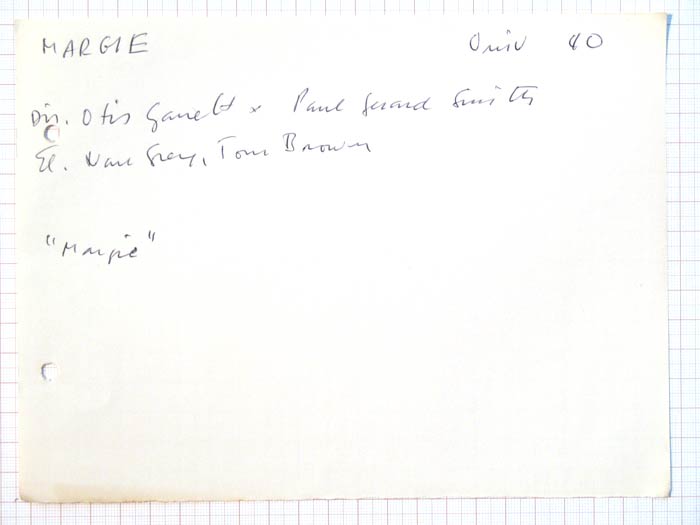 MARGIE Univ 40
Dir. Otis Garrett x Paul Gerard Smith
El. Nan Grey, Tom Brown
"Margie"